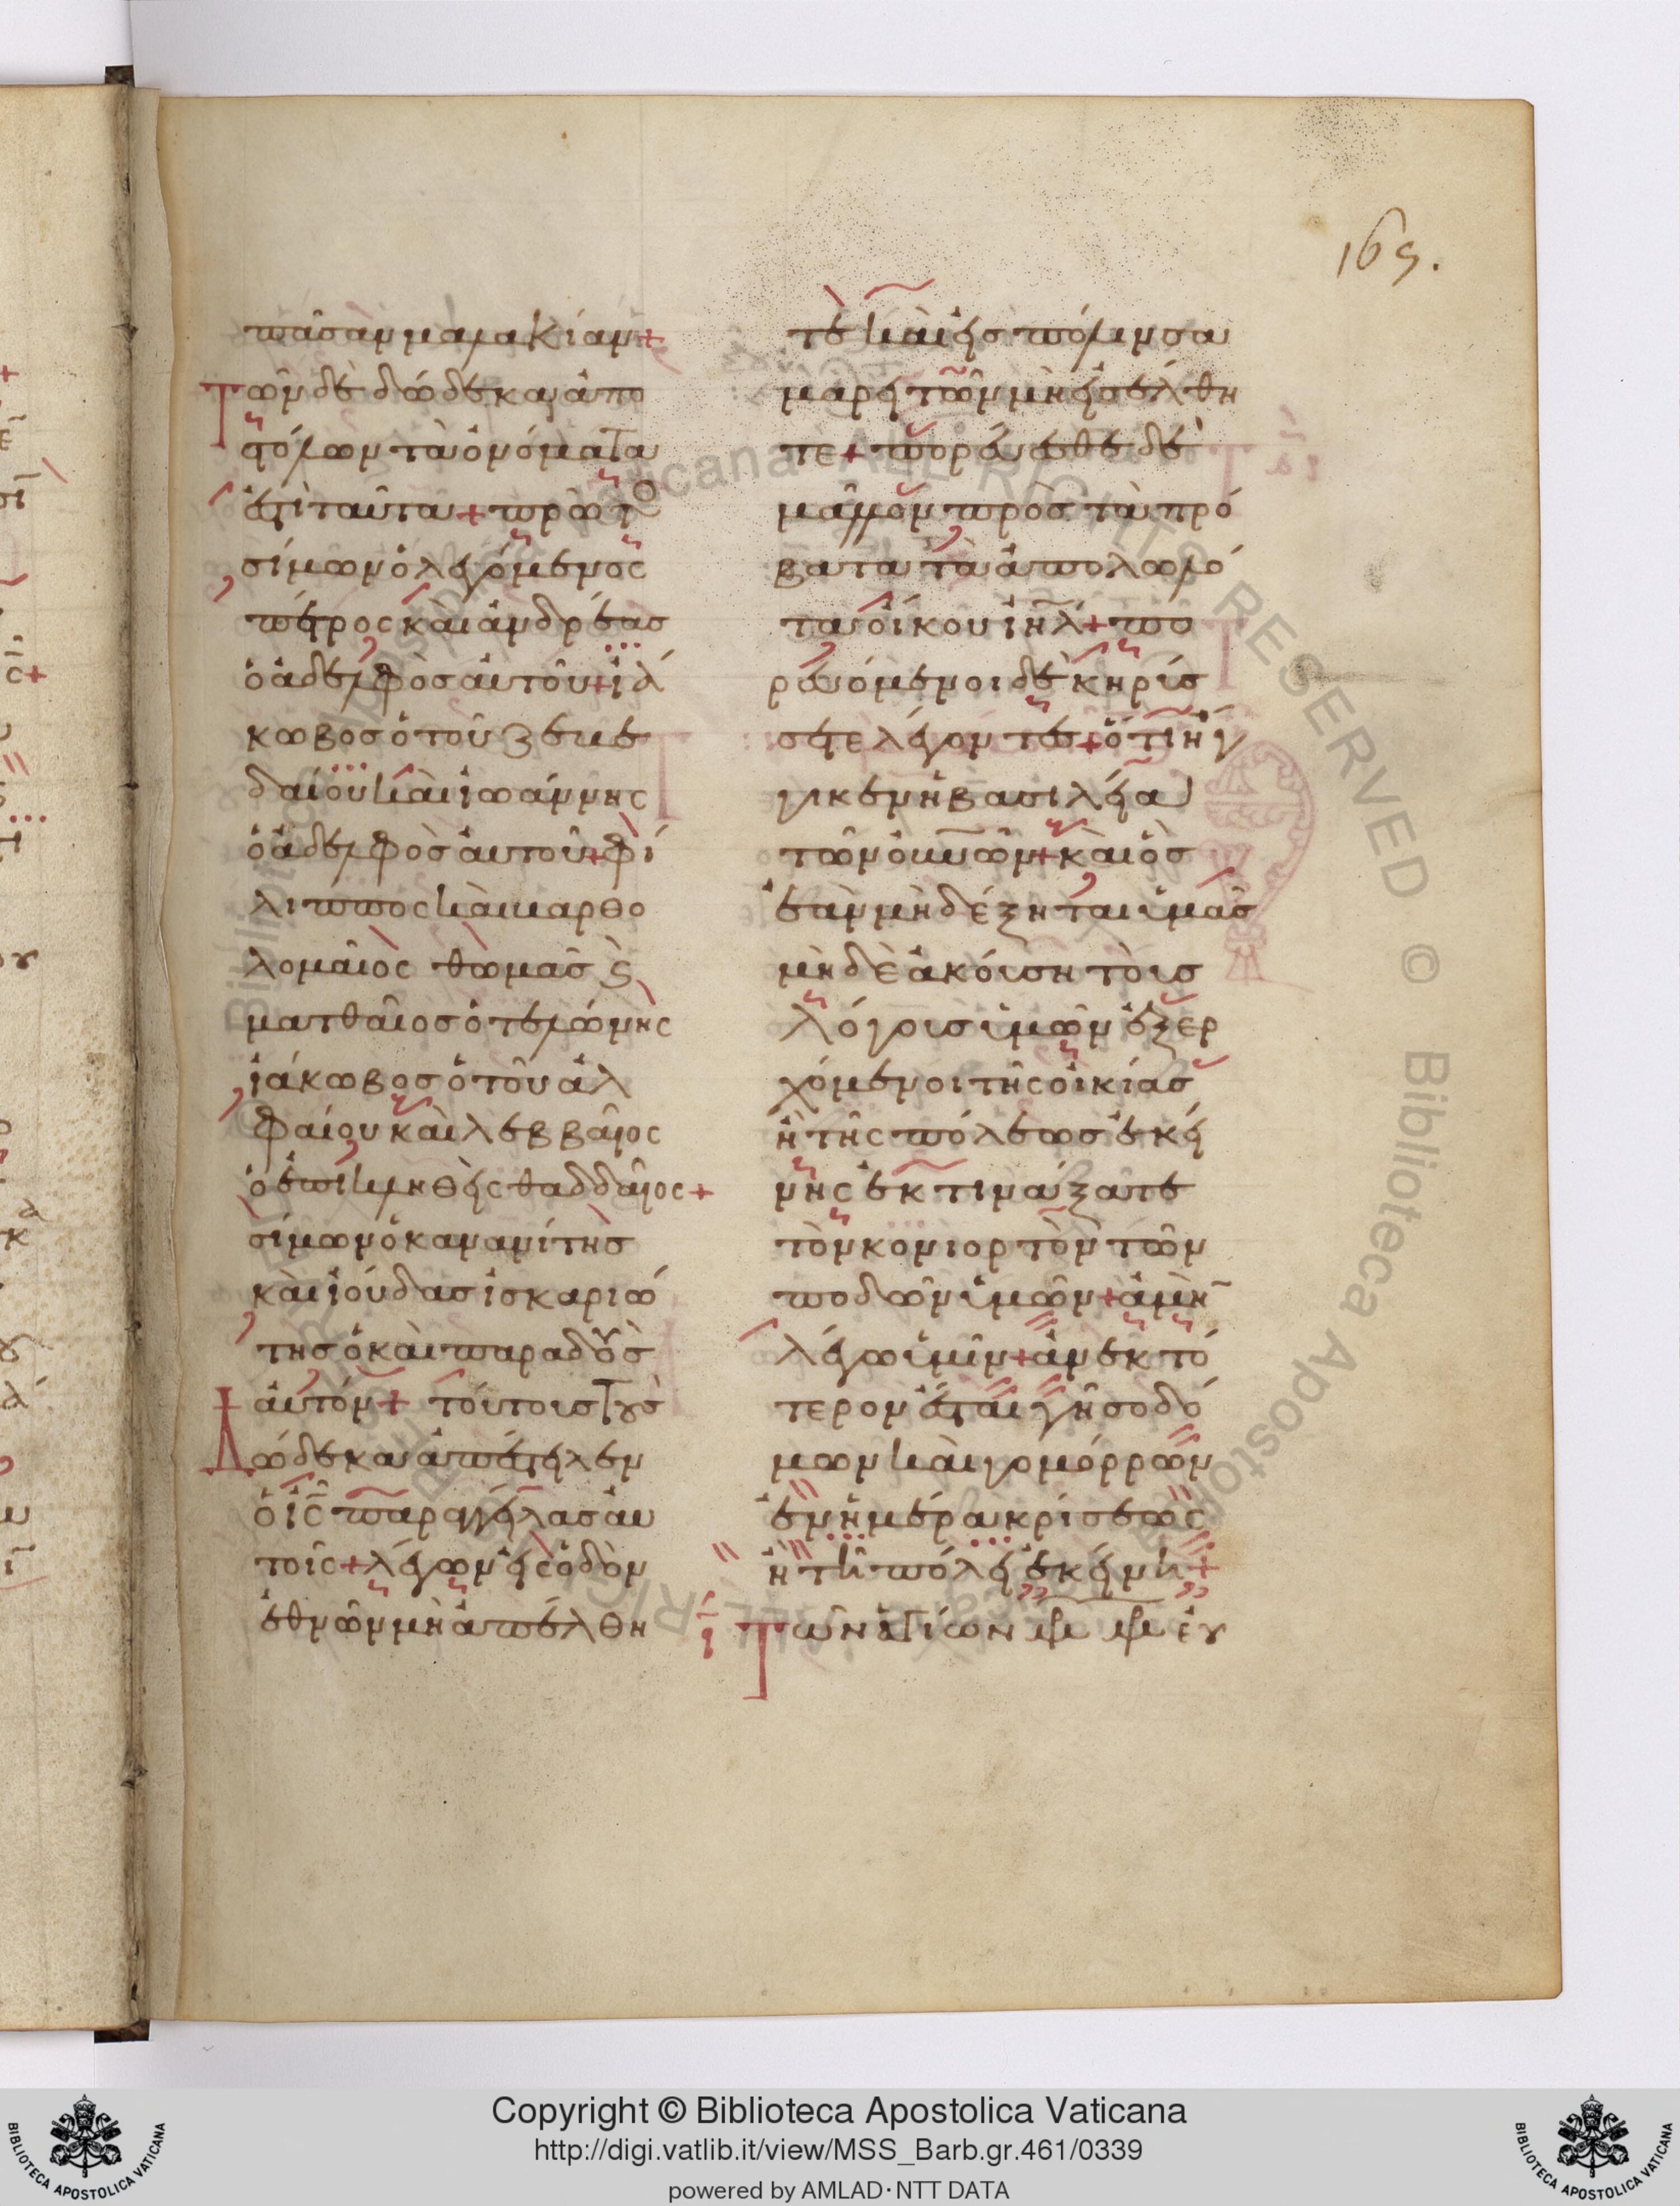 165.
πᾶσαν μαλακίαν +
Τῶν δὲ δώδεκα ἀπο
στόλων τὰ ὀνόματα
ἐστὶ ταῦτα + πρῶτος
σίμων ὁ λεγόμενος
πέτρος καὶ ἀνδρέας
ὁ ἀδελφὸς αὐτοῦ + ἰά
κωβος ὁ τοῦ ζεβε
δαίου καὶ ἰωάννης
ὁ ἀδελφὸς αὐτοῦ + φί
λιππος καὶ βαρθο
λομαῖος θωμᾶς ϗ
ματθαῖος ὁ τελώνης
ἰάκωβος ὁ τοῦ ἀλ
φαίου καὶ λεββαῖος
ὁ ἐπικληθεὶς θαδδαῖος +
σίμων ὁ κανανίτης
καὶ ἰούδας ἰσκαριώ
της ὁ καὶ παραδοὺς
αὐτόν + τούτους τοὺς
Δώδεκα ἀπέστειλεν
ὁ ἰς̅ παραγγείλας αὐ
τοῖς + λέγων εἰς ὁδὸν
ἐθνῶν μὴ ἀπέλθη
τε καὶ εἰς πόλιν σα
μαρειτῶν μὴ εἰσέλθη
τε + πορεύεσθε δὲ
μᾶλλον πρὸς τὰ πρό
βατα τὰ ἀπολωλό
τα οἴκου ἰηλ̅ + πο
ρευόμενοι δὲ κηρύσ
σετε λέγοντες + ὅτι ἤγ
γικεν ἡ βασιλεία
τῶν οὐνῶν + καὶ ὃς
ἐὰν μὴ δέξηται ὑμᾶς
μηδὲ ἀκούση τοὺς
λόγους ὑμῶν ἐξερ
χόμενοι τῆς οἰκίας
ἢ τῆς πόλεως ἐκεί
νης ἐκτινάξατε
τὸν κονιορτὸν τῶν
ποδῶν ὑμῶν + ἀμὴν
λέγω ὑμῖν + ἀνεκτό
τερον ἔσται γῆ σοδό
μων καὶ γομόρρων
ἐν ἡμέρα κρίσεως
ἢ τῆ πόλει ἐκείνη +
ι̅ Τῶν ἁγίων
Copyright © Biblioteca Apostolica Vaticana
http://digi.vatlib.it/view/MSS_Barb.gr.461/0339
powered by AMLAD·NTT DATA